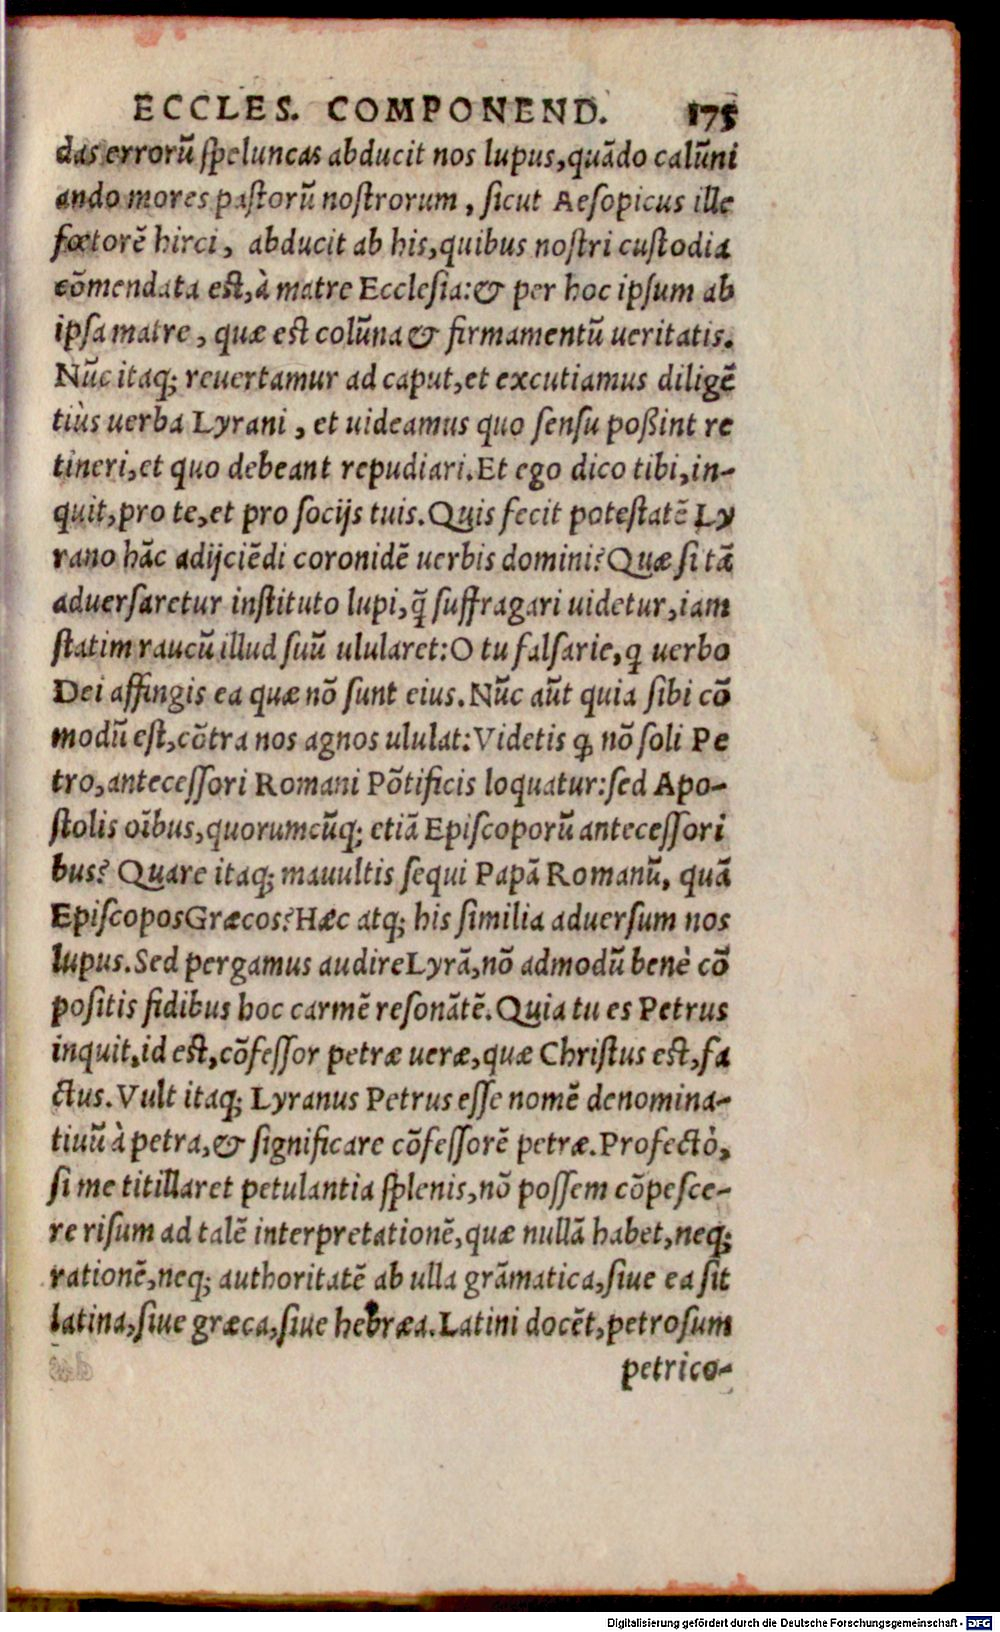 ECCLES. COMPONEND. 175
das errorū ſpeluncas abducit nos lupus, quādo calūni
ando mores paſtorū noſtrorum, ſicut Aeſopicus ille
fœtorē hirci, abducit ab his, quibus noſtri cuſtodia
cōmendata eſt, à matre Eccleſia: & per hoc ipſum ab
ipſa matre, quæ eſt colūna & firmamentū ueritatis.
Nūc itaq; reuertamur ad caput, et excutiamus diligē
tiùs uerba Lyrani, et uideamus quo ſenſu poßint re
tineri, et quo debeant repudiari. Et ego dico tibi, in-
quit, pro te, et pro ſocijs tuis. Quis fecit poteſtatē Ly
rano hāc adijciēdi coronidē uerbis domini? Quæ ſi tā
aduerſaretur inſtituto lupi, q̄ ſuffragari uidetur, iam
ſtatim raucū illud ſuū ululaṙet: O tu falſarie, q uerbo
Dei affingis ea quæ nō ſunt eius. Nūc aūt quia ſibi cō
modū eſt, cōtra nos agnos ululat: Videtis ꝙ nō ſoli Pe
tro, anteceſſori Romani Pōtificis loquatur: ſed Apo-
ſtolis oībus, quorumcūq; etiā Epiſcoporū anteceſſori
bus? Quare itaq; mauultis ſequi Papā Romanū, quā
Epiſcopos Græcos? Hæc atq; his ſimilia aduerſum nos
lupus. Sed pergamus audire Lyrā, nō admodū benè cō
poſitis fidibus hoc carmē reſonātē. Quia tu es Petrus
inquit, id eſt, cōfeſſor petræ ueræ, quæ Chriſtus eſt, fa
ctus. Vult itaq; Lyranus Petrus eſſe nomē denomina-
tiuū à petra, & ſignificare cōfeſſorē petræ. Profectò,
ſi me titillaret petulantia ſplenis, nō poſſem cōpeſce-
re riſum ad talē interpretationē, quæ nullā habet, neq;
rationē, neq; authoritatē ab ulla grāmatica, ſiue ea ſit
latina, ſiue græca, ſiue hebræa. Latini docēt, petroſum
petrico-
Digitalisierung gefördert durch die Deutsche Forschungsgemeinschaft - DFG